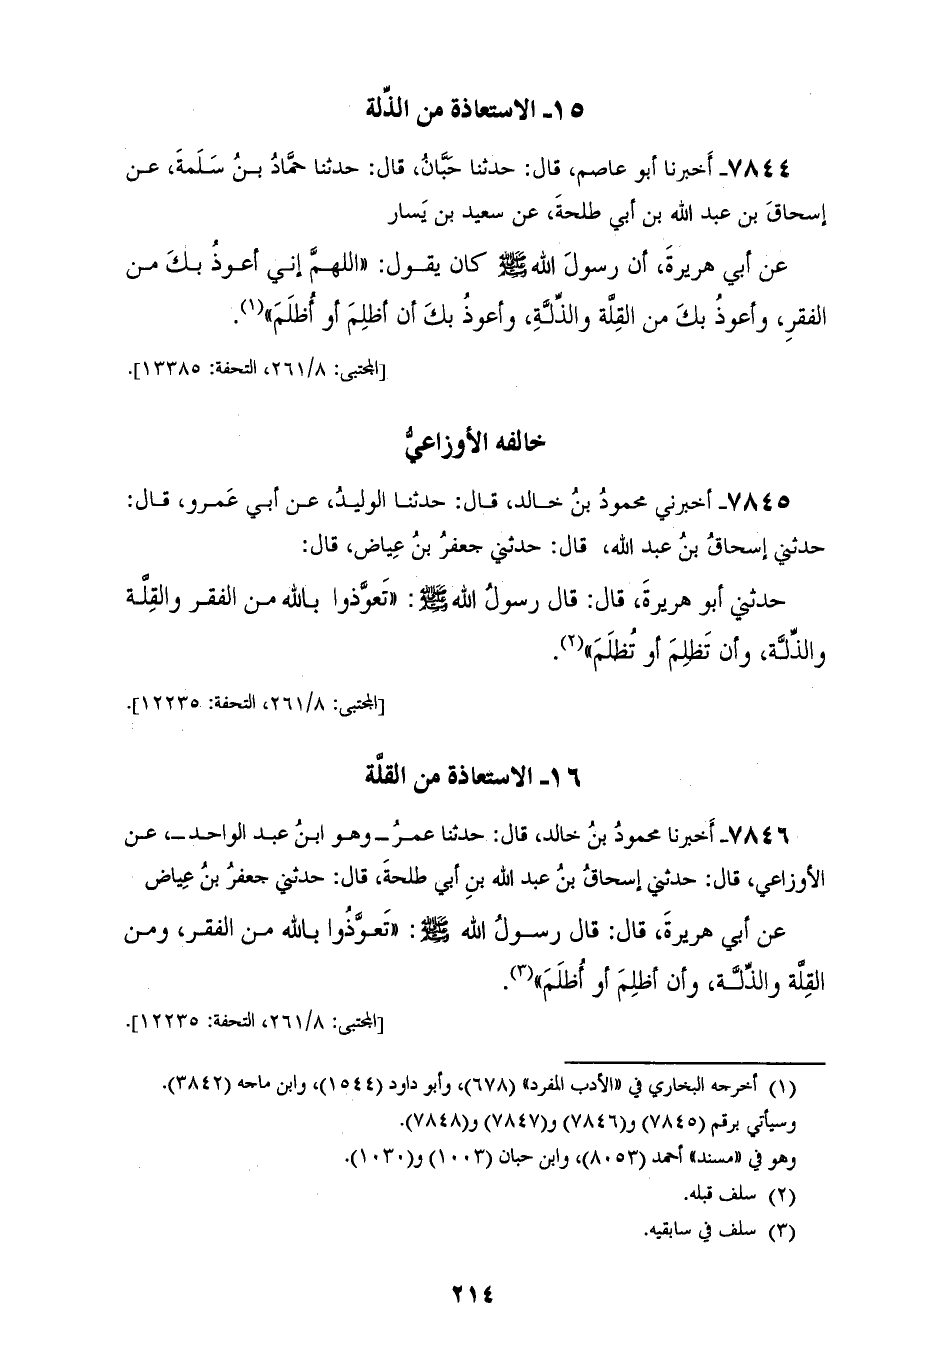 ١٥ـ الاستعاذة من الذِّلة
٧٨٤٤ـ أَخبرنا أبو عاصم، قال: حدثنا حَبَّانُ، قال: حدثنا حمَّادُ بـنُ سَـلَمةَ، عـن
إسحاقَ بن عبد الله بن أبي طلحةَ، عن سعيد بن يَسار
عن أبي هريرةَ، أن رسولَ الله ﷺ كان يقـول: «اللهـمَّ إنـي أعـوذُ بـكَ مـن
الفقرِ، وأعوذُ بكَ من القِلَّة والذِّلَّـةِ، وأعوذُ بكَ أن أظلِمَ أو أُظلَمَ»(١).
[المجتبى: ٢٦١/٨، التحفة: ١٣٣٨٥].
خالفه الأوزاعيُّ
٧٨٤٥ـ أخبرني محمودُ بنُ خـالد، قـال: حدثنـا الوليـدُ، عـن أبـي عَمـرو، قـال:
حدثني إسحاقُ بنُ عبد الله، قال: حدثني جعفرُ بنُ عِياض، قال:
حدثني أبو هريرةَ، قال: قال رسولُ الله ﷺ: «تَعوَّذوا بـالله مـن الفقـر والقِلَّـة
والذِّلَّـة، وأن تَظلِمَ أو تُظلَمَ»(٢).
[المجتبى: ٢٦١/٨، التحفة: ١٢٢٣٥].
١٦ـ الاستعاذة من القلَّة
٧٨٤٦ـ أَخبرنا محمودُ بنُ خالد، قال: حدثنا عمـرُ ـ وهـو ابـنُ عبـد الواحـد ـ، عـن
الأوزاعي، قال: حدثني إسحاقُ بنُ عبد الله بنِ أبي طلحةَ، قال: حدثني جعفرُ بنُ عِياض
عن أبي هريرةَ، قال: قال رسـولُ الله ﷺ: «تَعـوَّذُوا بـالله مـن الفقـر، ومـن
القِلَّة والذِّلَّـة، وأن أظلِمَ أو أُظلَمَ»(٣).
[المجتبى: ٢٦١/٨، التحفة: ١٢٢٣٥].
(١) أخرجه البخاري في «الأدب المفرد» (٦٧٨)، وأبو داود (١٥٤٤)، وابن ماجه (٣٨٤٢).
وسيأتي برقم (٧٨٤٥) و(٧٨٤٦) و(٧٨٤٧) و(٧٨٤٨).
وهو في «مسند» أحمد (٨٠٥٣)، وابن حبان (١٠٠٣) و(١٠٣٠).
(٢) سلف قبله.
(٣) سلف في سابقيه.
٢١٤